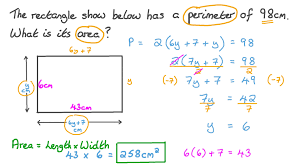 The rectangle show below has a perimeter of 98cm.
What is its area?
6y+7
y cm
6cm
y
43cm
6y+7 cm
P = 2(6y+7+y) = 98
2(7y+7) = 98
2 2
(-7) 7y+7 = 49 (-7)
7y = 42
7 7
y = 6
Area = Length x Width
43 x 6 = 258cm²
6(6)+7 = 43